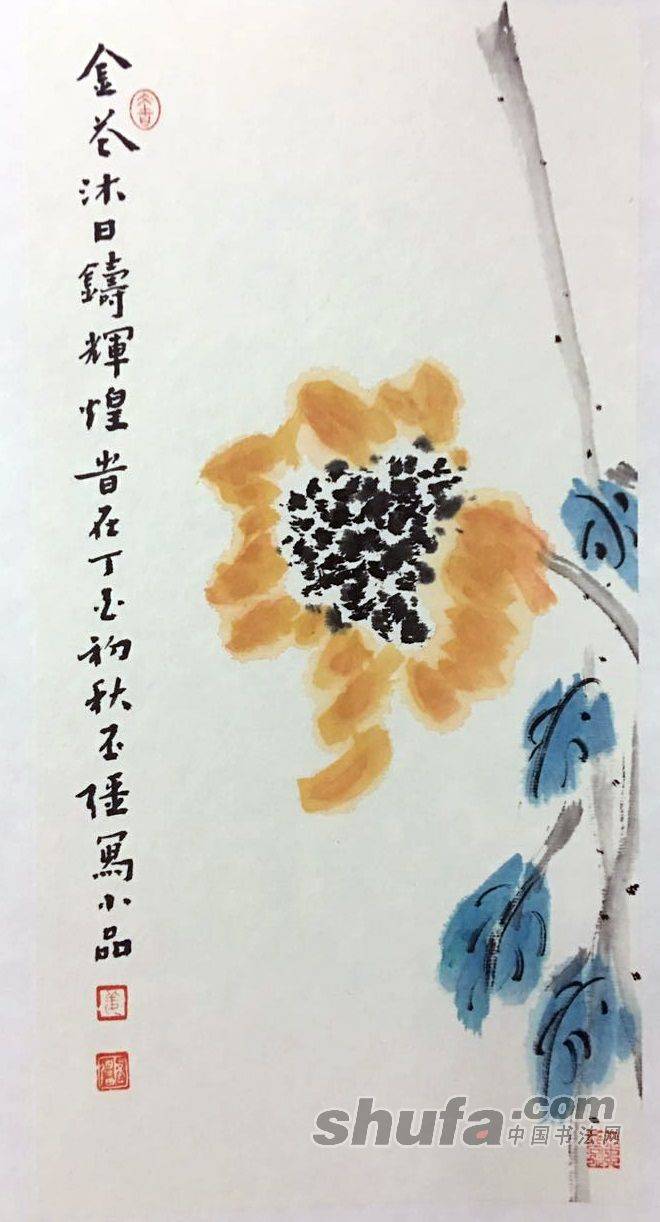 金花沐日鑄輝煌時在丁酉初秋玉疆寫小品
shufa.com
中国书法网